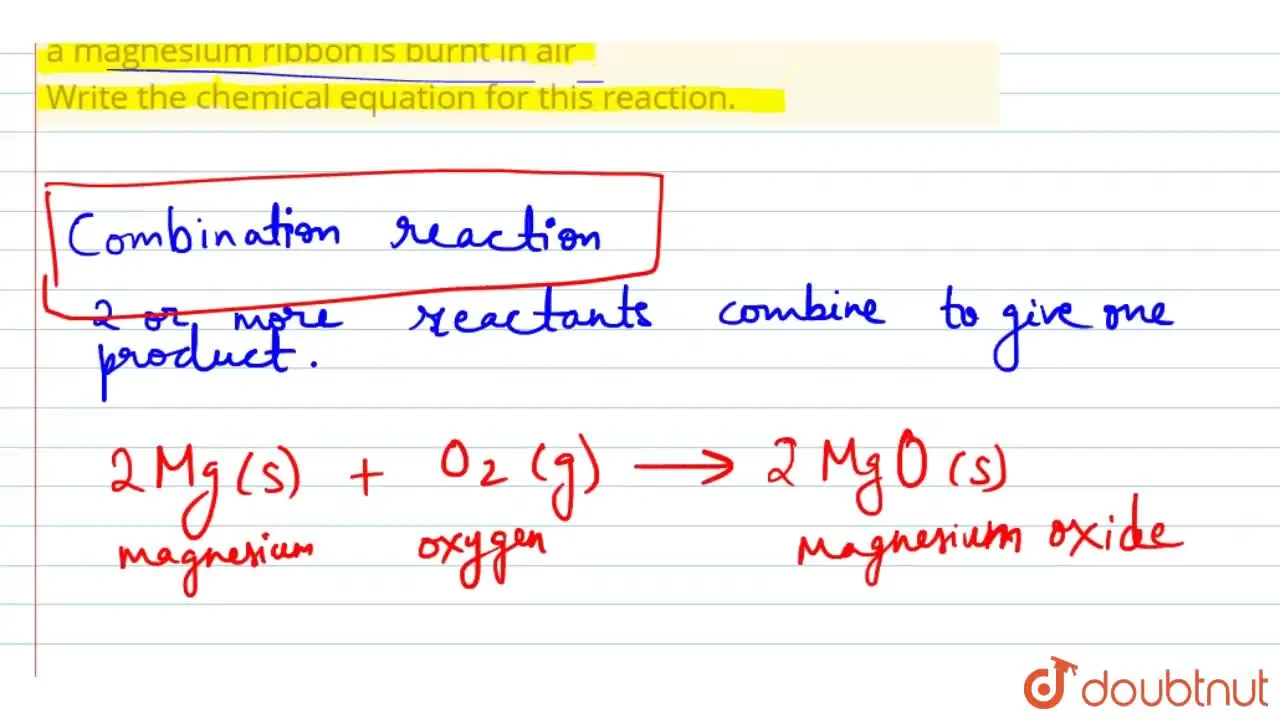 a magnesium ribbon is burnt in air
Write the chemical equation for this reaction.
Combination reaction
2 or more reactants combine to give one
product.
2Mg(s) + O2(g) → 2MgO(s)
magnesium oxygen Magnesium oxide
doubtnut